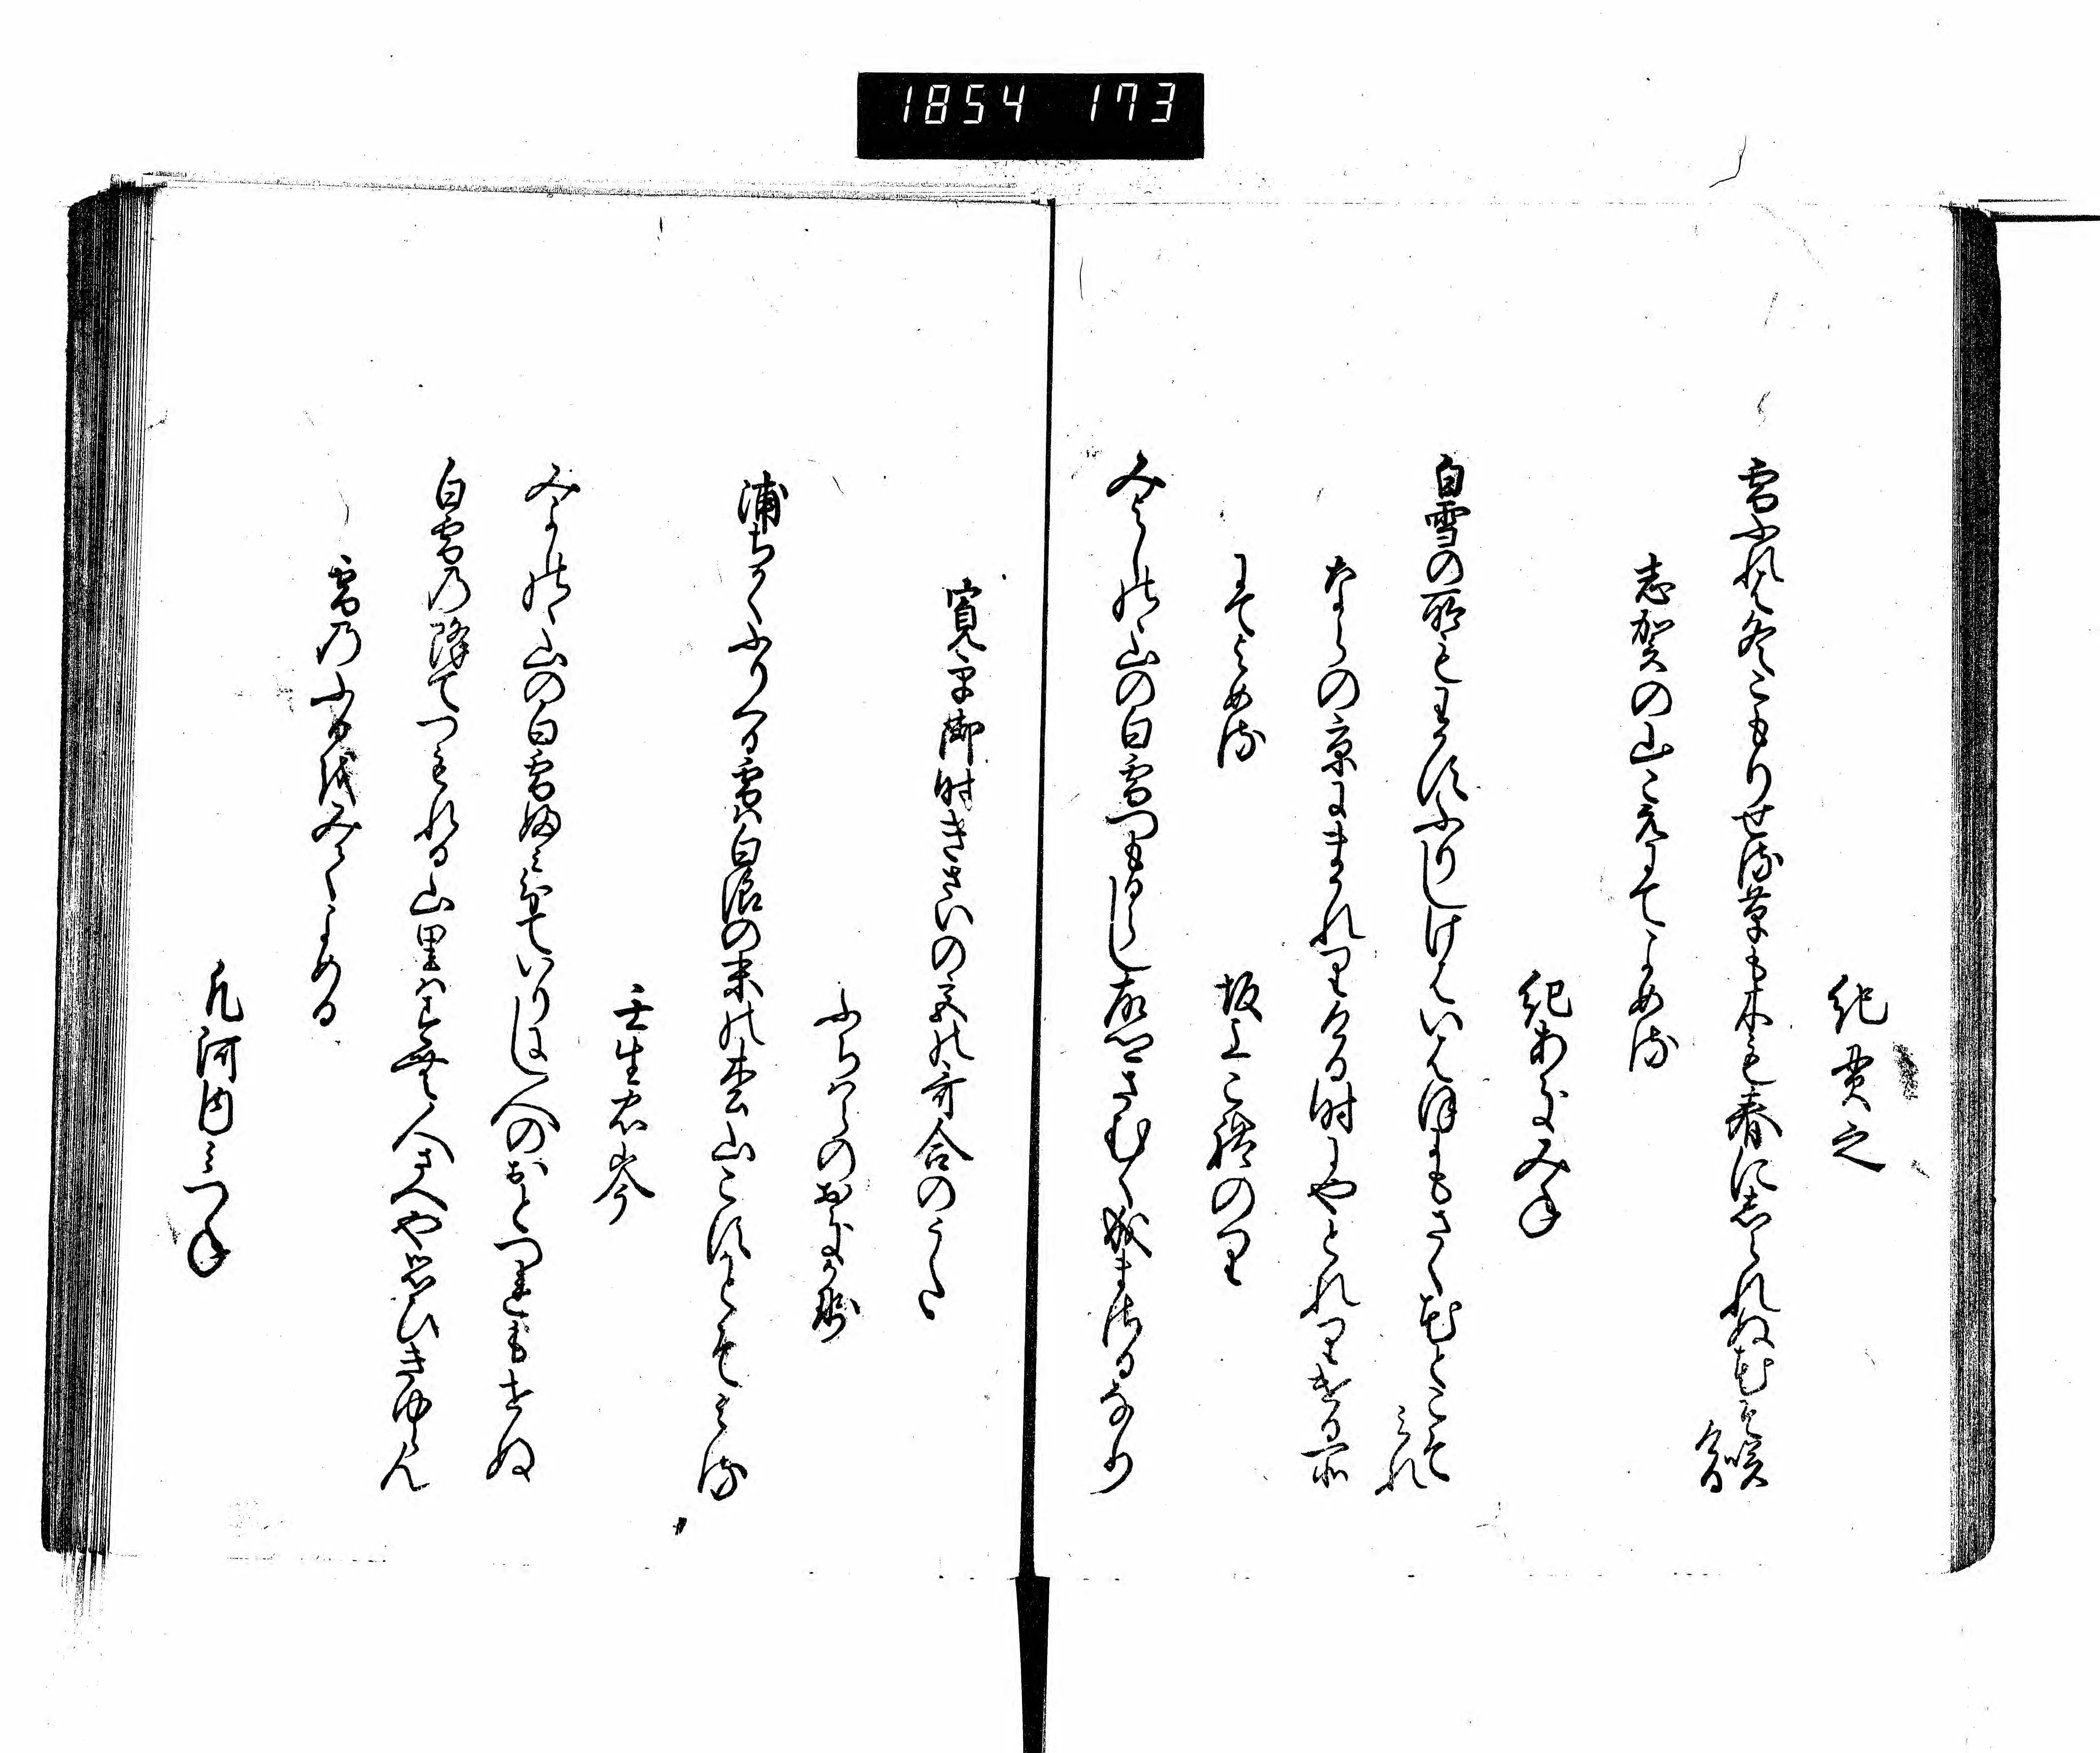 1854 173
紀貫之
雪ふれは冬こもりせる草も木も春にしられぬ花そ咲
ける
志賀の山こえにてよめる
紀あきみね
白雪の所もわかすふりしけはいはほにもさく花とこそ
みれ
ならの京にまかれりける時にやとれりける所
にてよめる
坂上これのり
みよしのゝ山の白雪つもるらし故郷さむく成まさるなり
寛平御時きさいの宮の哥合のうた
ふちはらのおきかせ
浦ちかくふりくる雪は白浪の末の松山こすかとそみる
壬生忠岑
みよしのゝ山の白雪ふみ分ていりにし人のおとつれもせぬ
白雪の降てつもれる山里はすむ人さへや思ひきゆらん
雪のふるをみてよめる
凡河内みつね